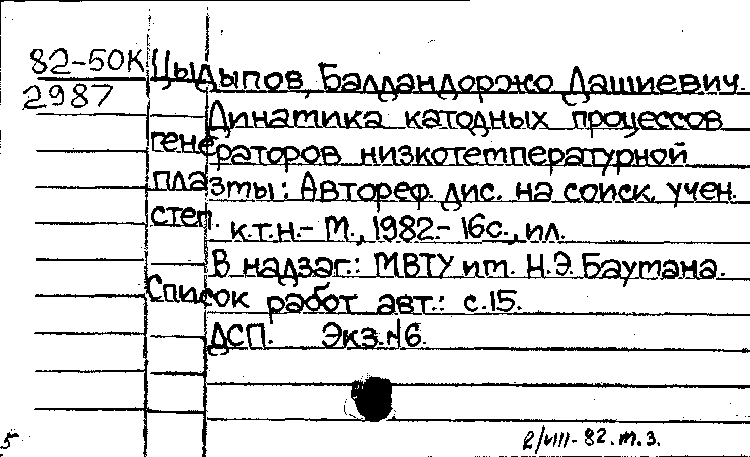 82-50К
2987
Цыдыпов, Балдандоржо Дашиевич.
Динатика катодных процессов
генераторов низкотемпературной
плазты: Автореф. дис. на соиск. учен.
степ. к.т.н.- М., 1982.- 16с., ил.
В надзаг.: МВТУ им. Н.Э. Баутана.
Список работ авт.: с.15.
ДСП. Экз.№6.
2/VIII- 82. т. з.
5